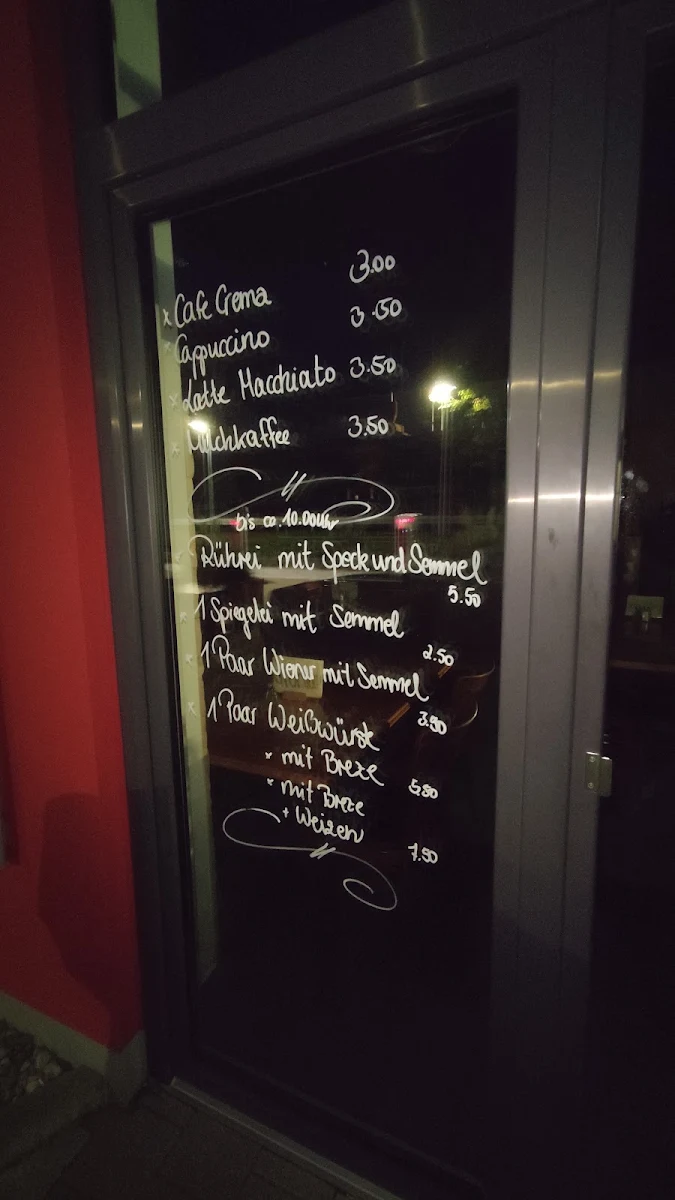 x Cafe Crema 3.00
x Cappuccino 3.50
x Latte Macchiato 3.50
x Milchkaffee 3.50
bis ca. 10.00 Uhr
x Rührei mit Speck und Semmel
5.50
x 1 Spiegelei mit Semmel
2.50
x 1 Paar Wiener mit Semmel
3.90
x 1 Paar Weißwürste
x mit Breze 5.80
x mit Breze
+ Weizen
7.90